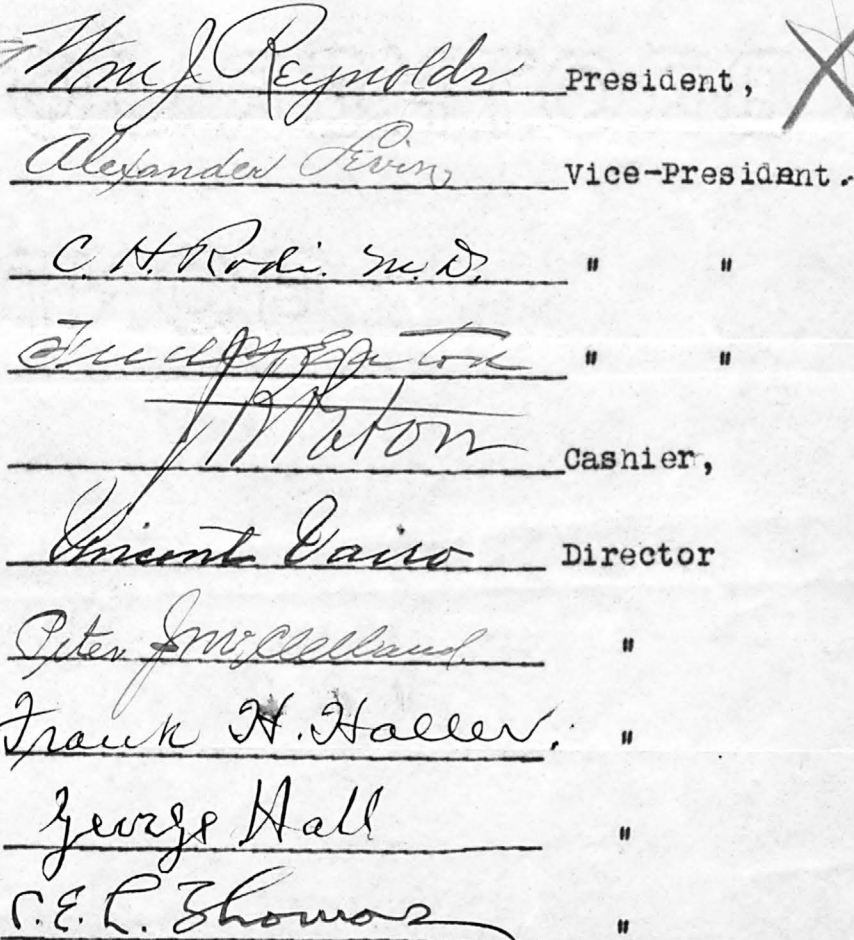 Wm J. Reynolds President,
Alexander Levin Vice-President.
C. H. Rodi. M. D. " "
" "
J Paton Cashier,
Vincent Dairo Director
Peter J McClelland. "
Frank H. Haller, "
George Hall "
E. L. Thomas "